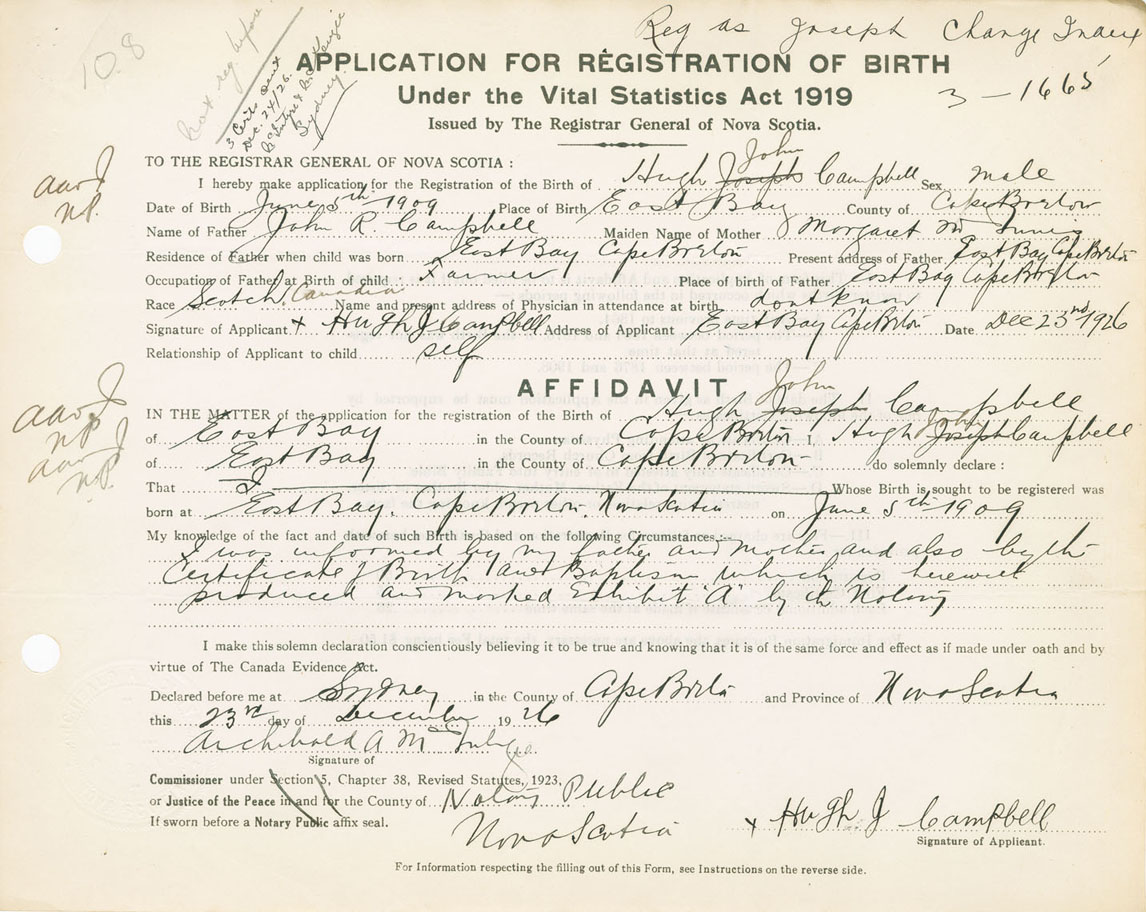 108
not reg before
3 Certs sent
Dec. 24/26.
McIntyre & McKenzie
Sydney.
Reg as Joseph Change Index
APPLICATION FOR REGISTRATION OF BIRTH
3 - 1665
Under the Vital Statistics Act 1919
Issued by The Registrar General of Nova Scotia.
TO THE REGISTRAR GENERAL OF NOVA SCOTIA :
John
I hereby make application for the Registration of the Birth of Hugh Joseph Campbell Sex male
Date of Birth June 5th 1909 Place of Birth East Bay County of Cape Breton
Name of Father John R. Campbell Maiden Name of Mother Margaret Mc Innis
Residence of Father when child was born East Bay Cape Breton Present address of Father East Bay Cape Breton
Occupation of Father at Birth of child Farmer Place of Birth of Father East Bay Cape Breton
Race Scotch. Canadian Name and present address of Physician in attendance at birth dont know
Signature of Applicant. x Hugh J Campbell Address of Applicant East Bay Cape Breton Date Dec 23rd 1926
Relationship of Applicant to child self
AAMcI
N.P.
AFFIDAVIT
John
IN THE MATTER of the application for the registration of the Birth of Hugh Joseph Campbell
John
of East Bay in the County of Cape Breton I, Hugh Joseph Campbell
of East Bay in the County of Cape Breton do solemnly declare :
That I Whose Birth is sought to be registered was
born at East Bay. Cape Breton. Nova Scotia on June 5th 1909
My knowledge of the fact and date of such Birth is based on the following Circumstances:
I was informed by my father and mother and also by the
Certificate of Birth and Baptism which is herewith
produced and marked Exhibit "A" by the Notary
I make this solemn declaration conscientiously believing it to be true and knowing that it is of the same force and effect as if made under oath and by
virtue of The Canada Evidence Act.
Declared before me at Sydney in the County of Cape Breton and Province of Nova Scotia
this 23rd day of December 1926
Archibald A Mc
Signature of
Commissioner under Section 5, Chapter 38, Revised Statutes, 1923,
or Justice of the Peace in and for the County of Notary Public
If sworn before a Notary Public affix seal.
Nova Scotia
x Hugh J Campbell
Signature of Applicant.
For Information respecting the filling out of this Form, see Instructions on the reverse side.